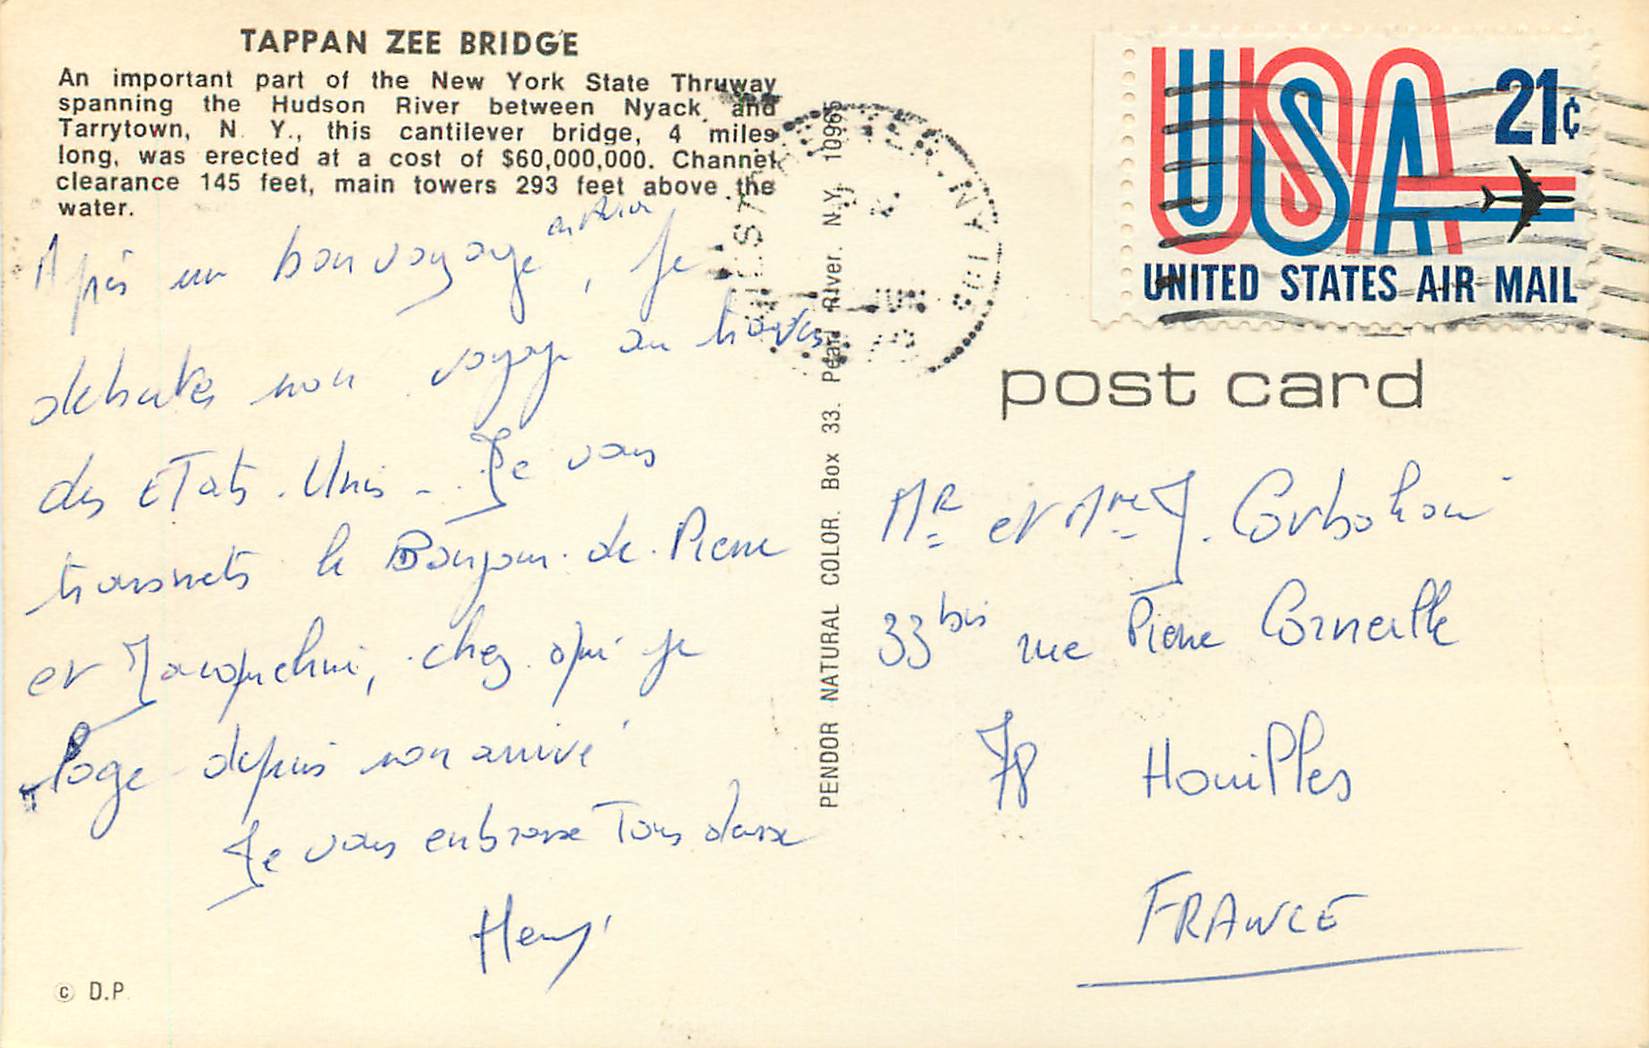 TAPPAN ZEE BRIDGE
An important part of the New York State Thruway
spanning the Hudson River between Nyack and
Tarrytown, N. Y., this cantilever bridge, 4 miles
long, was erected at a cost of $60,000,000. Channel
clearance 145 feet, main towers 293 feet above the
water.
Après un bon voyage en avion, je
debutes mon voyage au travers
des Etats-Unis - Je vous
transmets le Bonjour de Pierre
et Jacqueline, chez qui je
loge depuis mon arrivé
Je vous embrasse Tous
Henry
© D.P.
PENDOR NATURAL COLOR. Box 33. Pearl River. N.Y. 10965
USA 21¢
UNITED STATES AIR MAIL
post card
Mr et Mme J.
33 bis rue Pierre Corneille
78 Houilles
FRANCE